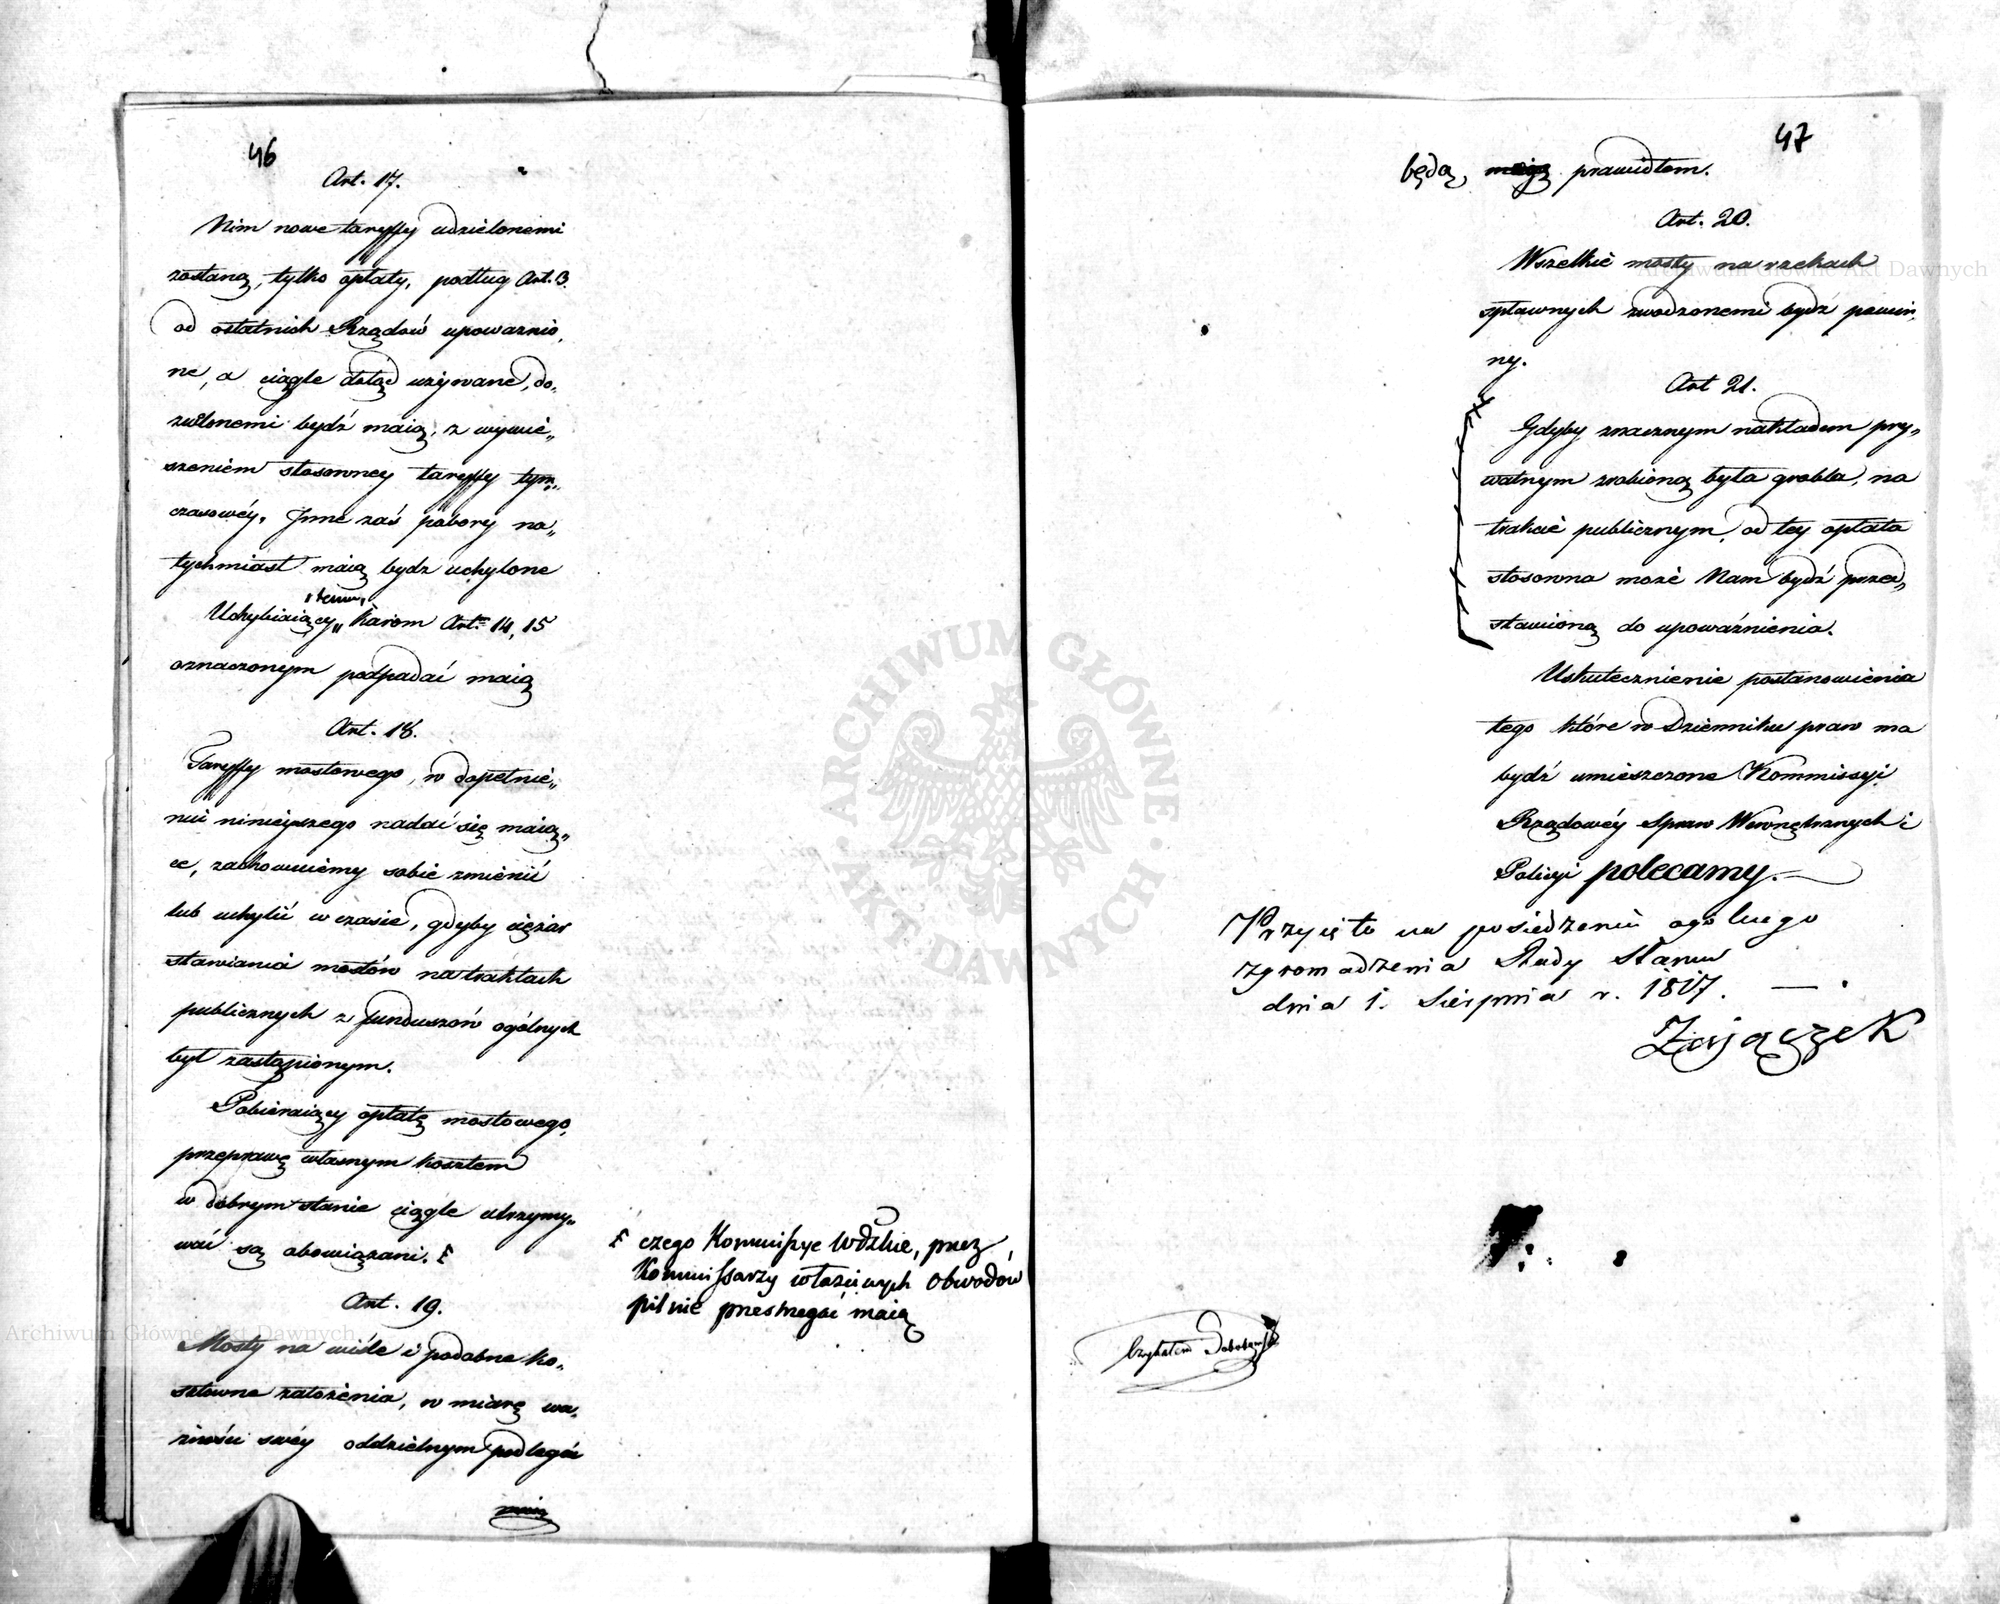 46
Art. 17.
Nim nowe taryffy udzielonemi
zostaną, tylko opłaty, podług Art. 3.
od ostatnich Rządów upoważnio,
ne, a ciągle dotąd używane, do„
zwolonemi bydź maią, z wywie„
szeniem stosowney taryffy tym„
czasowéy. Jnne zaś pobory na„
tychmiast maią bydz uchylone
Uchybiaiący „temu„ karom Art. 14, 15
oznaczonym podpadać maią
Art. 18.
Taryffy mostowego, w dopełnie„
niu ninieyszego nadać się maią„
ce, zachowuiemy sobie zmienić
lub uchylić w czasie, gdyby ciężar
stawiania mostów na traktach
publicznych z funduszów ogólnych
był zastąpionym.
Pobieraiący opłatę mostowego,
przeprawę własnym kosztem
w dobrym stanie ciągle utrzymy„
wać są obowiązani. F
F czego Kommissye Wdzkie, przez
Kommissarzy właściwych Obwodów
pilnie przestrzegać maią
Art. 19.
Mosty na wiśle i podobne ko„
sztowne założenia, w miarę wa„
żności swéy oddzielnym podlegać
maią
47
będą, maią prawidłom.
Art. 20.
Wszelkie mosty na rzekach
spławnych zwodzonemi bydź powin,
ny.
Art 21.
Gdyby znacznym nakładem pry„
watnym zrobioną była grobla, na
trakcie publicznym, od tey opłata
stosowna może Nam bydź przed„
stawioną do upoważnienia.
Uskutecznienie postanowienia
tego które w Dzienniku praw ma
bydź umieszczone Kommissyi
Rządowéy Spraw Wewnętrznych i
Policyi polecamy.
Przyięto na posiedzeniu ogólnego
zgromadzenia Rady Stanu
dnia 1. Sierpnia r. 1817.
Zajączek
Archiwum Główne Akt Dawnych
Archiwum Główne Akt Dawnych
ARCHIWUM GŁÓWNE · AKT DAWNYCH ·